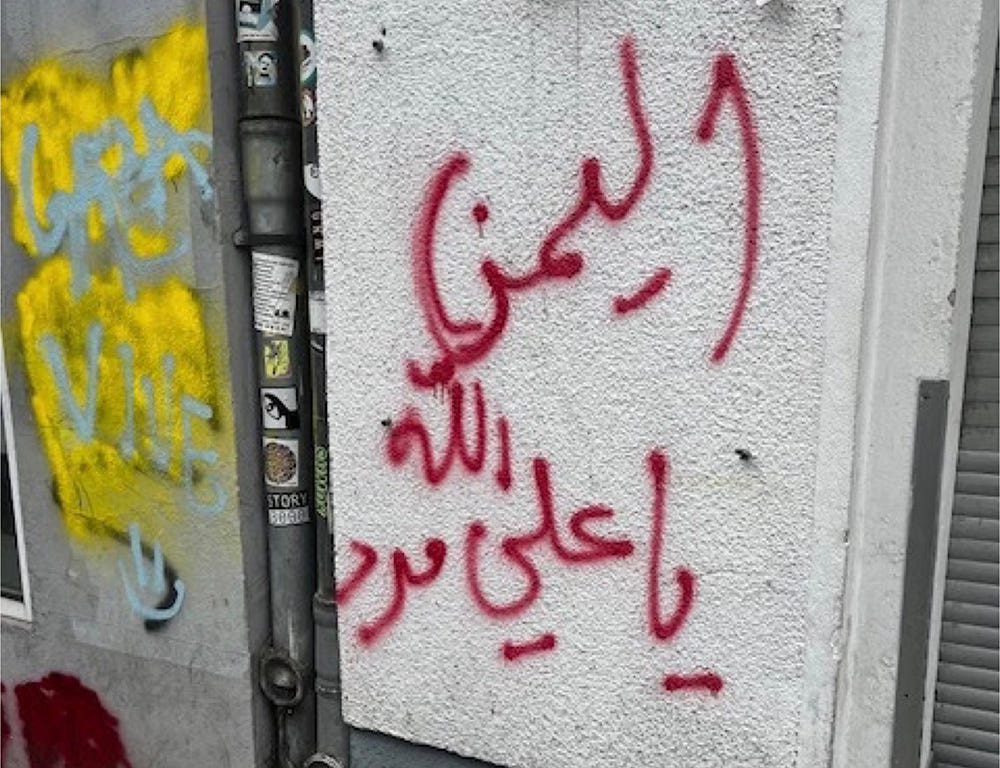 اليمن
الله
يا علي مدد
VINE
STORY